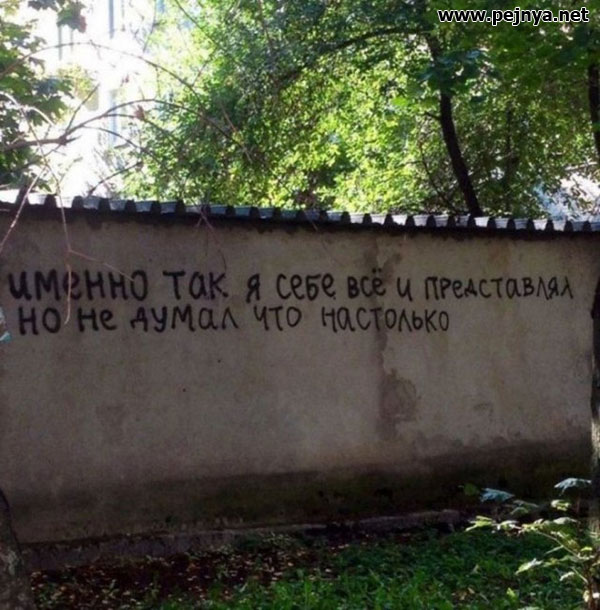 www.pejnya.net
именно так я себе всё и представлял
но не думал что настолько